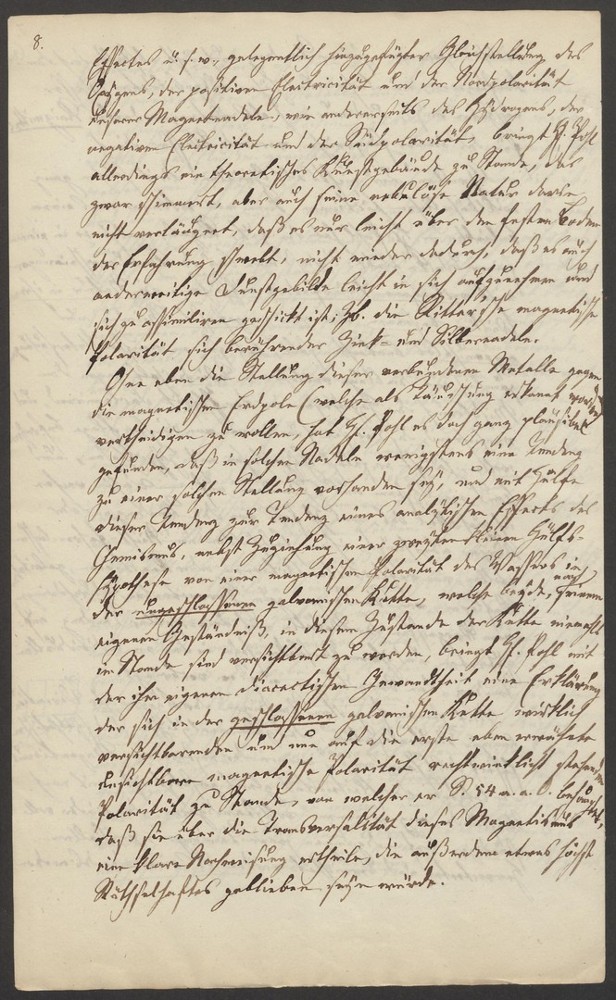 8.
Effectes u. s. w., gelegentlich hinzugefügter Gleichstellung des
Oxygens, der positiven Electricität und der Nordpolarität
Magnetnadeln, wie andererseits des Hydrogens, der
negativen Electricität und der Südpolarität, bringt H. Pohl
allerdings ein theoretisches Kunstgebäude zu Stande, das
zwar schimmert, aber auch seine nebulöse Natur darin
nicht verläugnet, daß es nur leicht über dem festen Boden
der Erfahrung schwebt, nicht minder dadurch, daß es auch
anderweitige Dunstgebilde leicht in sich aufzunehmen und
sich zu assimiliren geschickt ist; zb. die Ritter'sche magnetische
Polarität sich berührender Zink- und Silbernadeln.
Ohne eben die Stellung dieser verbundenen Metalle gegen
die magnetischen Erdpole (welche als Täuschung erkannt worden)
vertheidigen zu wollen, hat H. Pohl es doch ganz plausibel
gefunden, daß in solchen Nadeln wenigstens eine Tendenz
zu einer solchen Stellung vorhanden sey, und mit Hülfe
dieser Tendenz zur Tendenz eines analytischen Effects des
Chemismus, nebst Zuziehung einer zweyten kleinen Hülfs-
hypothese von einer magnetischen Polarität des Wassers in
der ungeschlossenen galvanischen Kette, welche beyde, nach seinem
eigenen Geständniß, in diesem Zustande der Kette niemals
im Stande sind versichtbart zu werden, bringt H. Pohl mit
der ihm eigenen dialectischen Gewandtheit eine Erklärung
der sich in der geschlossenen galvanischen Kette wirklich
versichtbarenden und nun auf die erste eben erwähnte
unsichtbare magnetische Polarität rechtwinklicht stehenden
Polarität zu Stande, von welcher er S. 54 a. a. O. behauptet,
daß sie über die Transversalität dieses Magnetismus
eine klare Nachweisung ertheile, die außerdem etwas höchst
Räthselhaftes geblieben seyn würde.